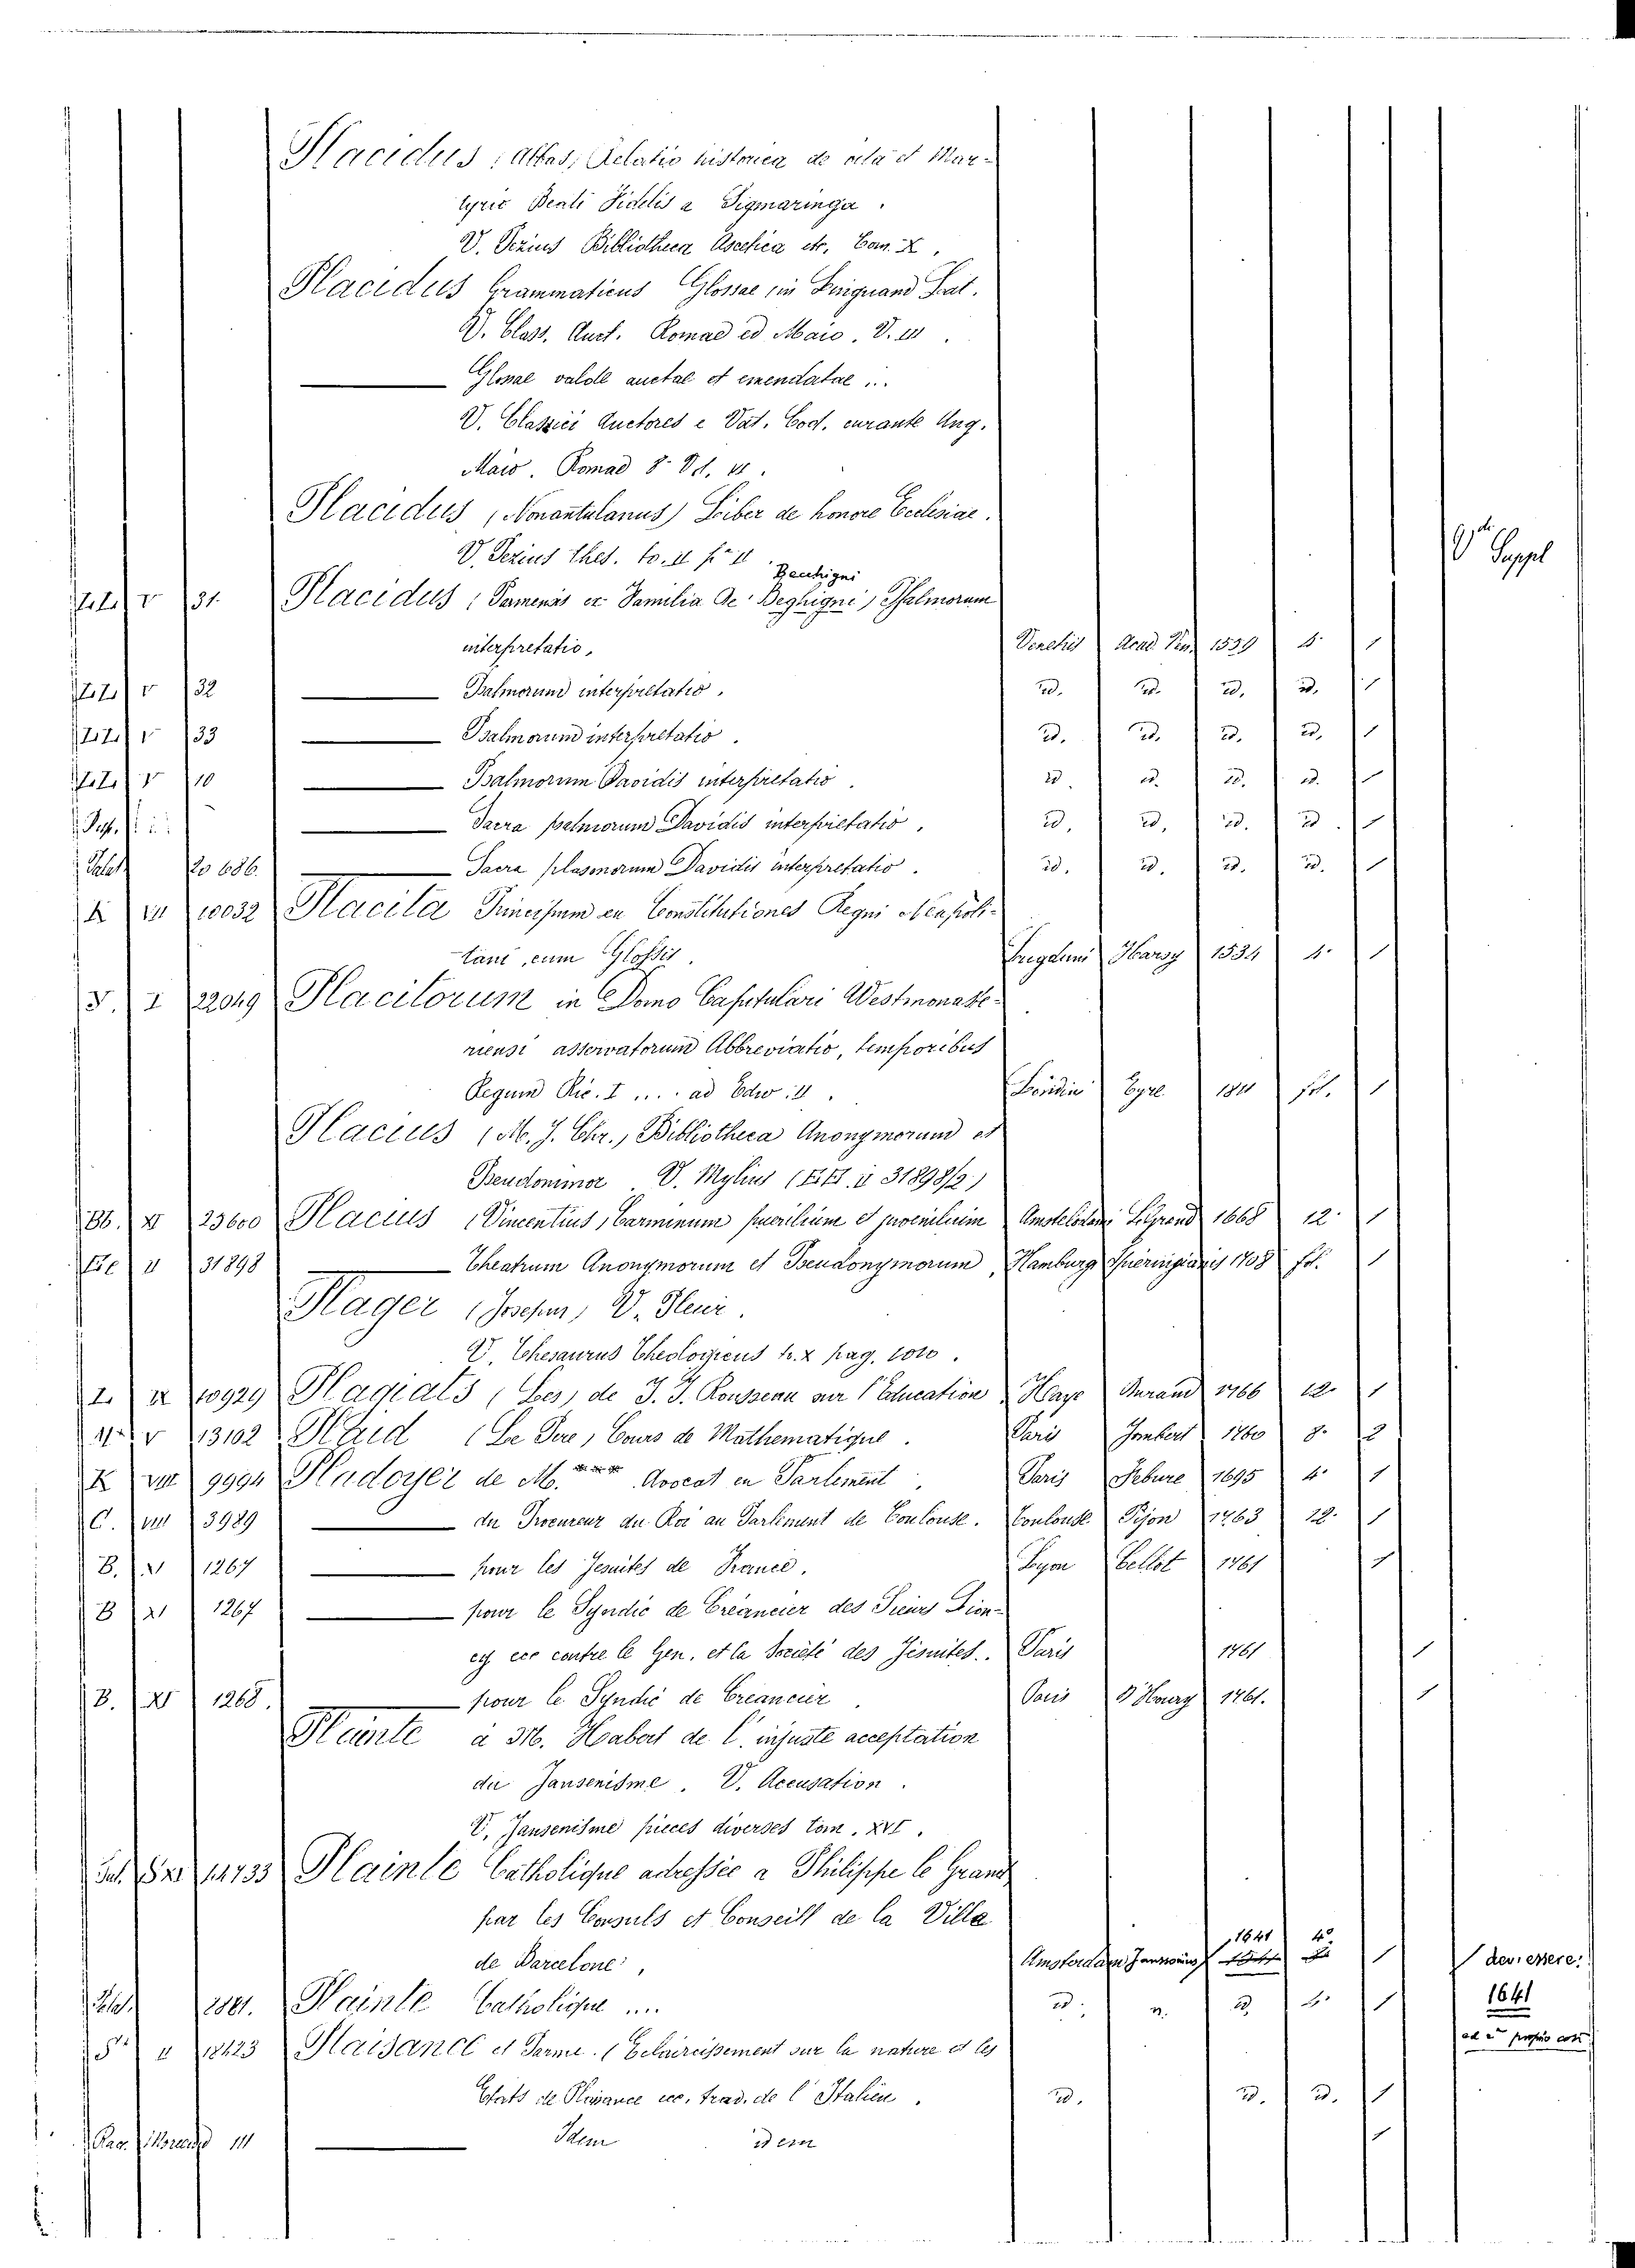 Placidus, Abbas, Relatio historica de vita et Mar-
tyrio Beati Fidelis a Sigmaringa.
V. Pezius Bibliotheca Ascetica etc. Tom. X.
Placidus Grammaticus Glossae in Linguam Lat.
V. Class. Auct. Romae ed Maio. V. III.
Glossae valde auctae et emendatae ...
V. Classici Auctores e Vat. Cod. curante Ang.
Maio. Romae 8° Vol. VI.
Placidus, (Nonantulanus) Liber de honore Ecclesiae.
V. Pezius Thes. to. II p. II
V. Suppl
Bechigni
V 31. Placidus (Parmensis ex Familia De' Beghigni) Psalmorum
interpretatio. Venetiis Acad Ven. 1559 4° 1
V 32 Psalmorum interpretatio. id. id. id. id. 1
V 33 Psalmorum interpretatio. id. id. id. id. 1
V 10 Psalmorum Davidis interpretatio. id. id. id. id. 1
Sacra psalmorum Davidis interpretatio. id. id. id. id. 1
Palat. 20 686. Sacra plasmorum Davidis interpretatio. id. id. id. id. 1
K VII 10032 Placita Principum en Constitutiones Regni Neapoli-
tani, cum Glossis. Lugduni Harsy 1534 4° 1
S. I 22049 Placitorum in Domo Capitulari Westmonaste-
riensi asservatorum Abbreviatio, temporibus
Regum Ric. I .... ad Edw. II. Londin Eyre 1811 fol. 1
Placius (M. J. Chr., Bibliotheca Anonymorum et
Pseudonimor V. Mylius (EE. II 31898/2)
Bb. XI 23600 Placius (Vincentius, Carminum puerilium et juvenilium Amstelodami LeGrand 1668 12° 1
Ee II 31898 Theatrum Anonymorum et Pseudonymorum, Hamburg Spieringianis 1708 fol. 1
Plager (Josephus, V. Pleur.
V. Thesaurus Theologicus to. X pag. 1010.
I. IX 10929 Plagiats (Les) de J. J. Rousseau sur l'Education Haye Durand 1766 12° 1
V 13102 Plaid (Le Pere, Cours de Mathematique. Paris Jombert 1760 8° 2
K VIII 9994 Pladoyer de M. *** Avocat en Parlement, Paris Febure 1695 4° 1
C. VIII 3989 du Procureur du Roi au Parlement de Toulouse. Toulouse Pijon 1763 12° 1
B. XI 1267 pour les Jesuites de France. Lyon Bellot 1761 1
B XI 1267 pour le Syndic de Créancier des Sieurs Lion-
cy ecc contre le Gen. et la Société des Jésuites.. Paris 1761 1
B. XI 1268. pour le Syndic de Créancier. Paris D'Houry 1761. 1
Plainte à M. Habert de l'injuste acceptation
du Jansenisme. V. Accusation.
V. Jansenisme pieces diverses Tom. XVI.
14733 Plainte Catholique adressée a Philippe le Grand
par les Consuls et Conseill de la Villa
1641 4°
de Barcelone, Amsterdam Janssonius 1
Palat. 2881. Plainte Catholique .... id. n. id. 4° 1
S II 18423 Plaisance et Parme. (Eclaircissement sur la nature et les
Etats de Plaisance ecc. trad. de l'Italien. id. id. id. 1
III Idem idem 1
dev. essere:
1641
ed è proprio così